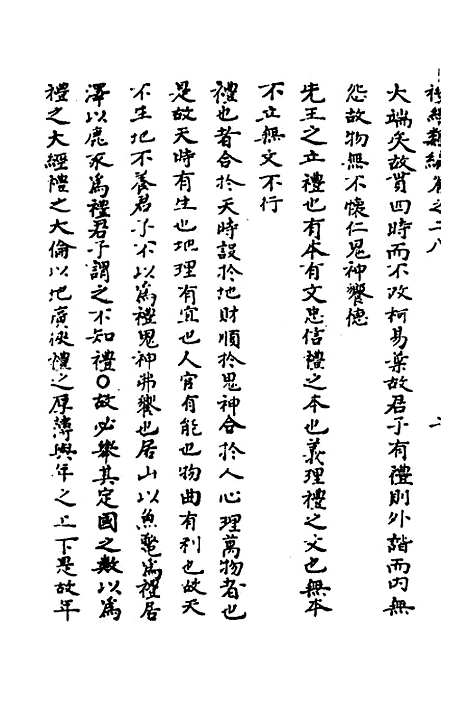 禮經類編卷之二八
大端矣故貫四時而不改柯易葉故君子有禮則外諧而內無
怨故物無不懷仁鬼神饗德
先王之立禮也有本有文忠信禮之本也義理禮之文也無本
不立無文不行
禮也者合於天時設於地財順於鬼神合於人心理萬物者也
是故天時有生也地理有宜也人官有能也物曲有利也故天
不生地不養君子不以為禮鬼神弗饗也居山以魚鱉為禮居
澤以鹿豕為禮君子謂之不知禮○故必舉其定國之數以為
禮之大經禮之大倫以地廣狹禮之厚薄與年之上下是故年